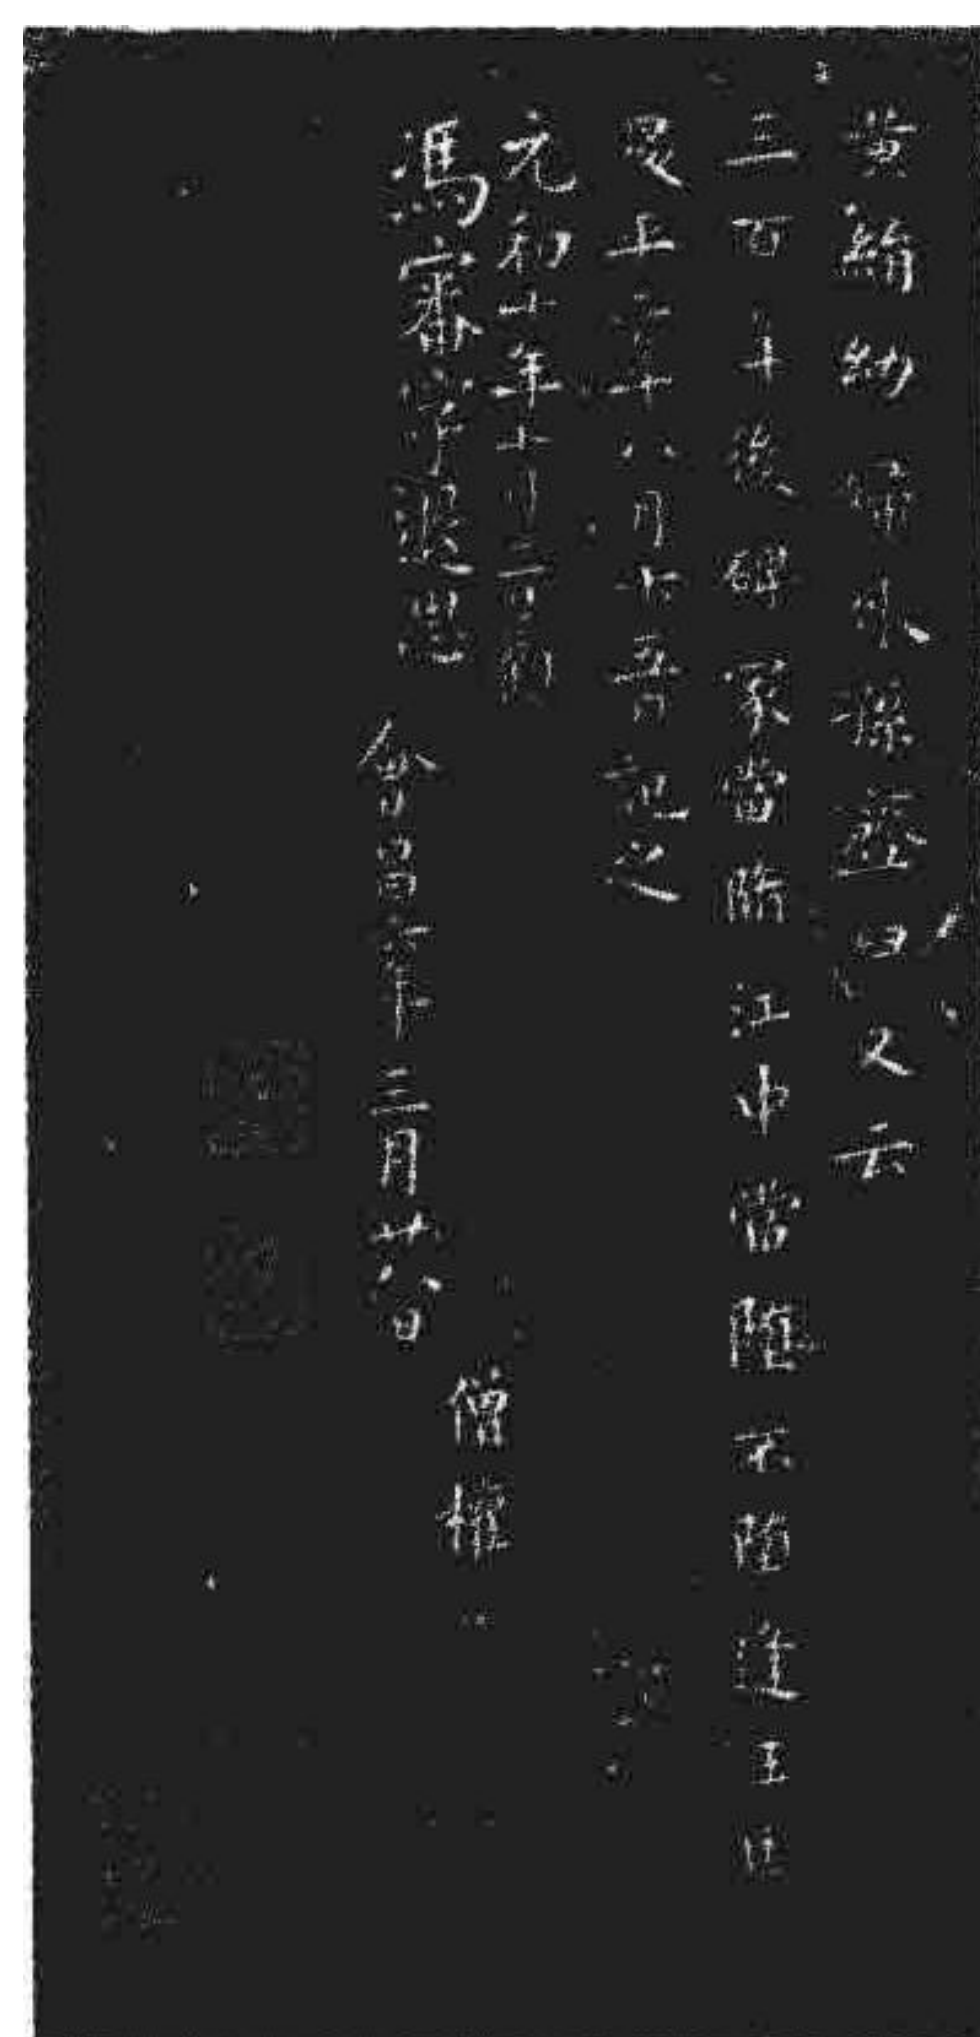 黃絹幼婦外孫䪢臼又云
三百年後碑冢當墮江中當墮不墮逢王匡
昇平二年八月十五日記之
元和十年十月二日
馮審字退思
會昌六年三月廿八日
僧權